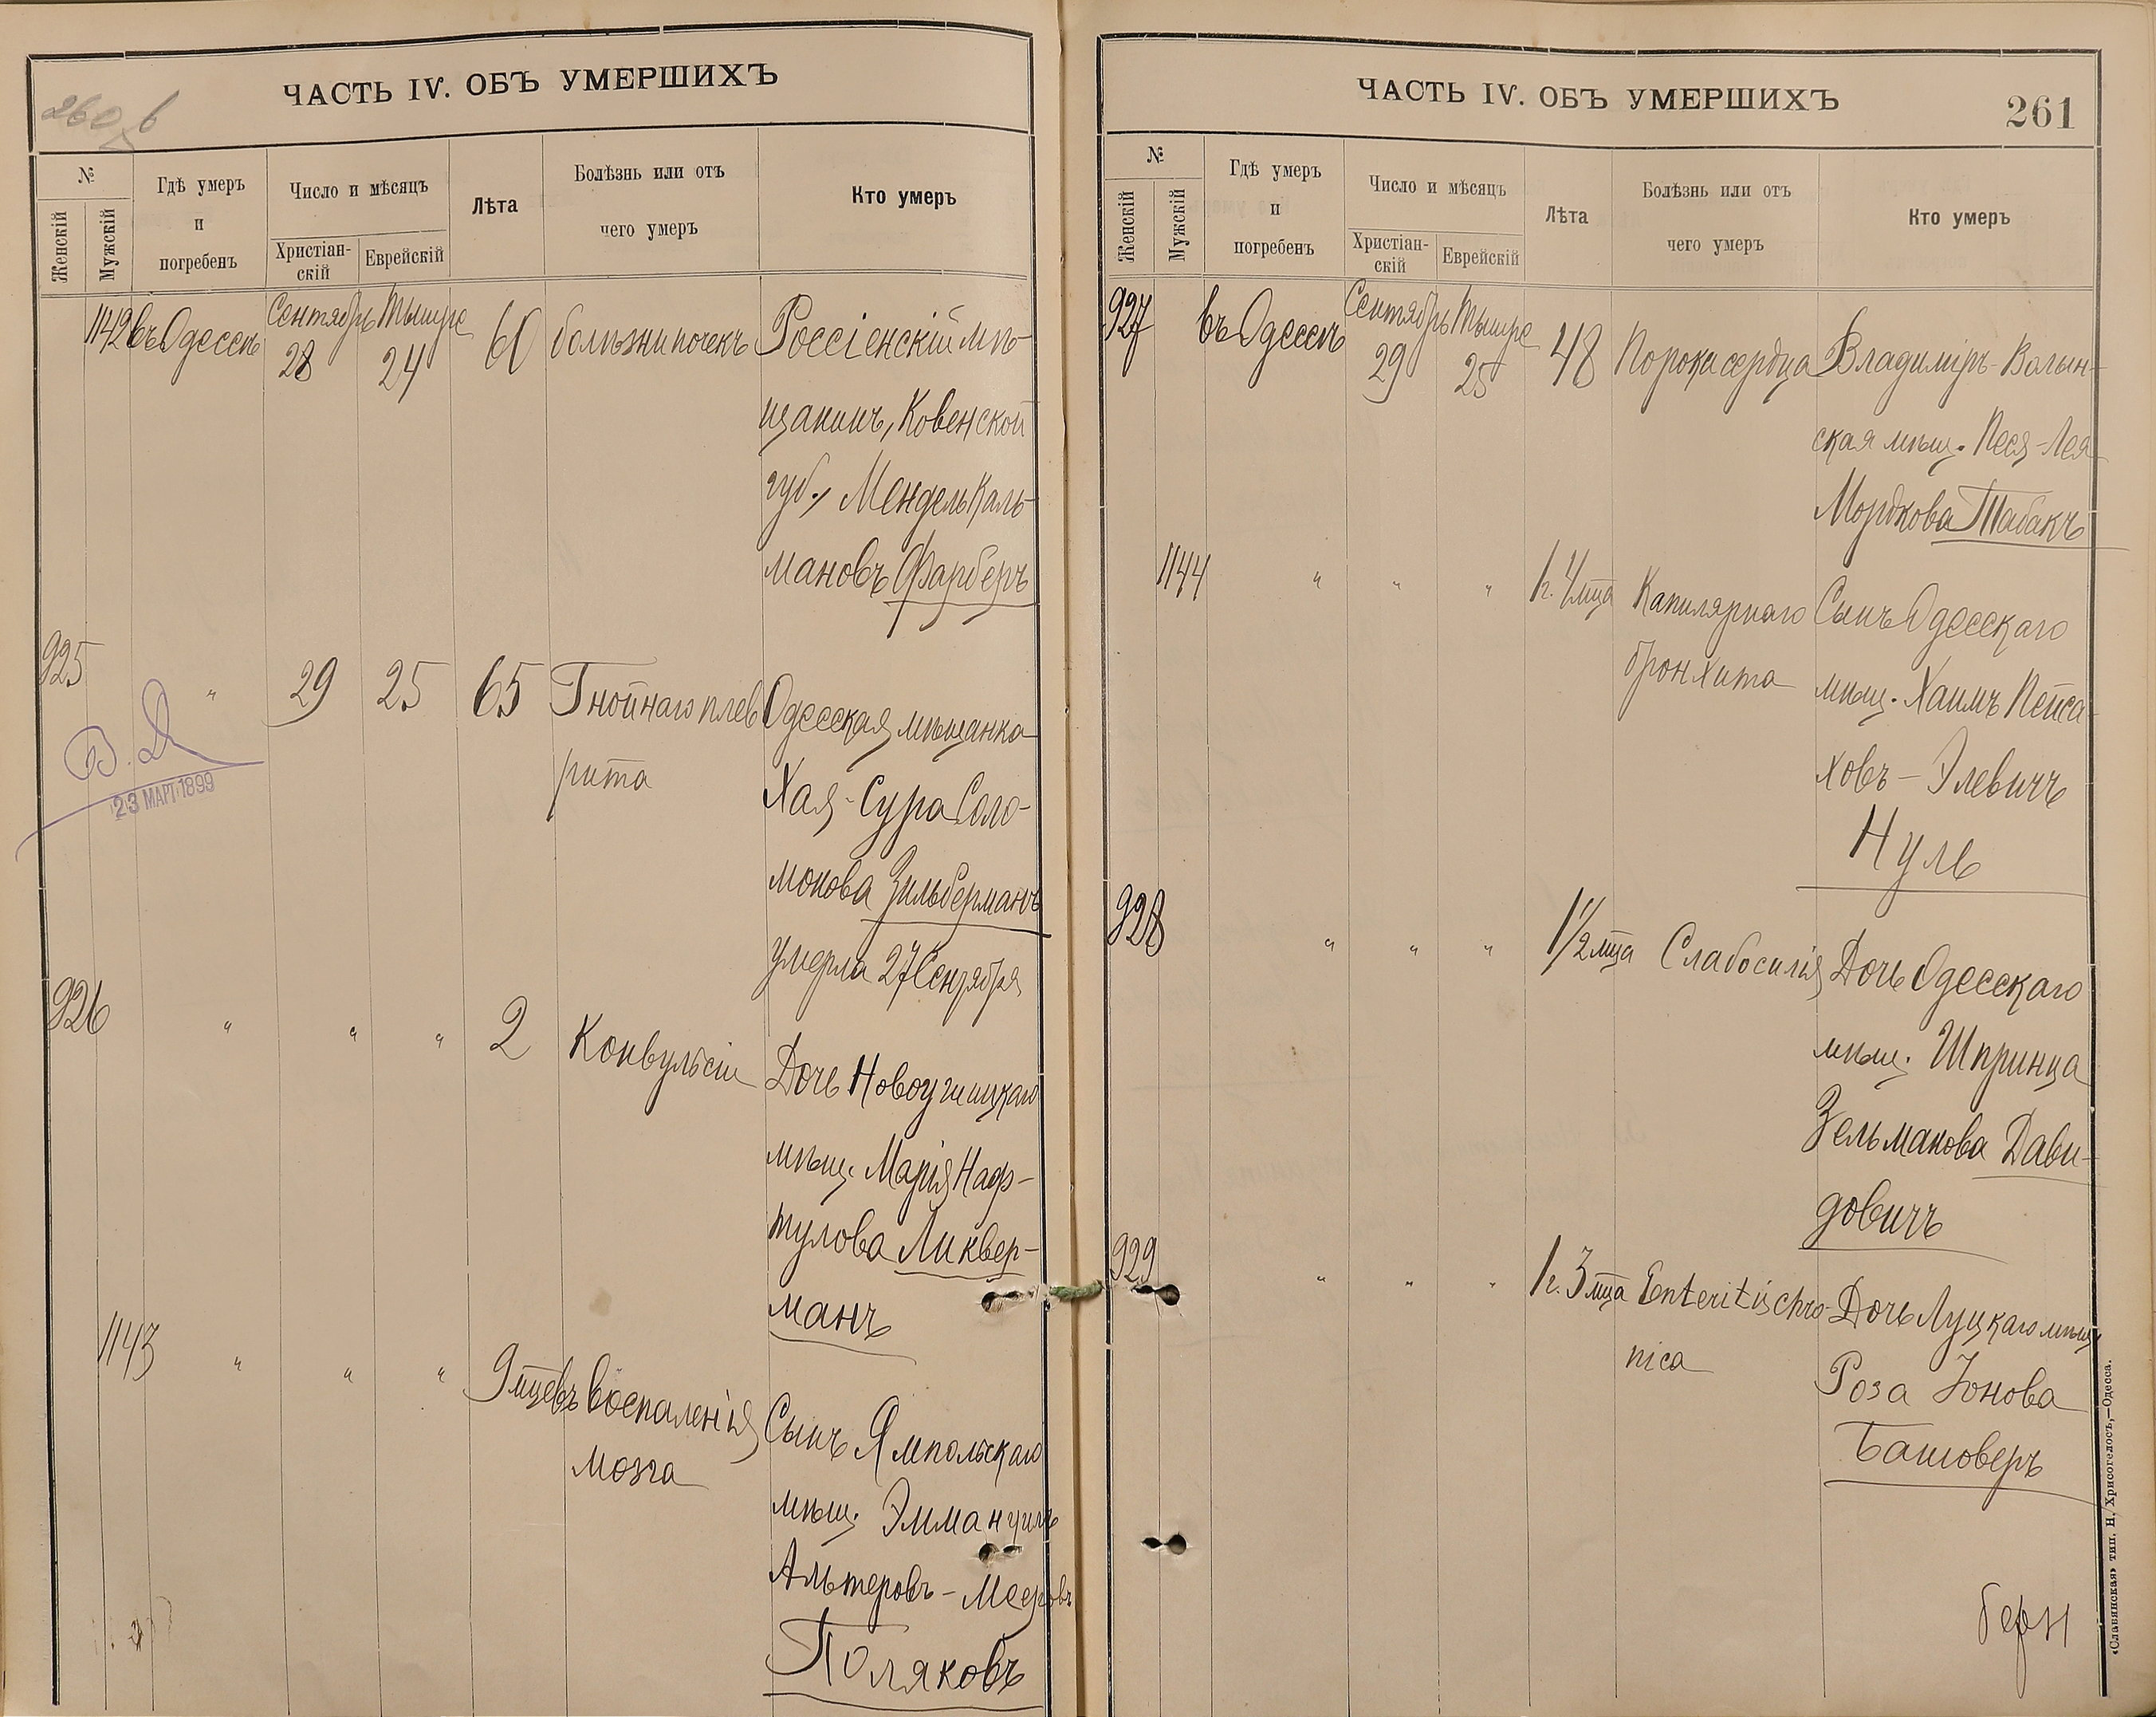 ЧАСТЬ IV. ОБЪ УМЕРШИХЪ
260 б
№
Женскій
Мужскій
Гдѣ умеръ
и
погребенъ
Число и мѣсяцъ
Христіан-
скій
Еврейскій
Лѣта
Болѣзнь или отъ
чего умеръ
Кто умеръ
1142 въ Одессѣ Сентябрь 28 Тышре 24 60 болѣзни почекъ Россіенскій мѣ-
щанинъ, Ковенской
губ., Мендель Каль-
мановъ Фарберъ
925 " 29 25 65 Гнойнаго плев Одесская мѣщанка
рита Хая-Сура Соло-
монова Зильберманъ
умерла 27 Сентября
В. Д.
23 МАРТ 1899
926 " " " 2 Конвульсіи Дочь Новоушицкаго
мѣщ. Марія Наф-
тулова Ликвер-
манъ
1143 " " " 9 мцевъ Воспаленія Сынъ Ямпольскаго
мозга мѣщ. Эммануилъ
Альтеровъ-Мееровъ
Поляковъ
ЧАСТЬ IV. ОБЪ УМЕРШИХЪ
261
№
Женскій
Мужскій
Гдѣ умеръ
и
погребенъ
Число и мѣсяцъ
Христіан-
скій
Еврейскій
Лѣта
Болѣзнь или отъ
чего умеръ
Кто умеръ
927 въ Одессѣ Сентябрь 29 Тышре 25 48 Порока сердца Владиміръ-Волын-
ская мѣщ. Песя-Лея
Мордкова Табакъ
1144 " " " 1 г. 4 мца Капилярнаго Сынъ Одесскаго
бронхита мѣщ. Хаимъ Пейса-
ховъ-Элевичъ
Нуль
928 " " " 1 1/2 мца Слабосилія Дочь Одесскаго
мѣщ. Шпринца
Зельманова Дави-
довичъ
929 " " " 1 г. 3 мца Enteritis chro- Дочь Луцкаго мѣщ
nica Роза Іонова
Башоверъ
«Славянская» тип. Н. Хрисогелосъ,—Одесса.